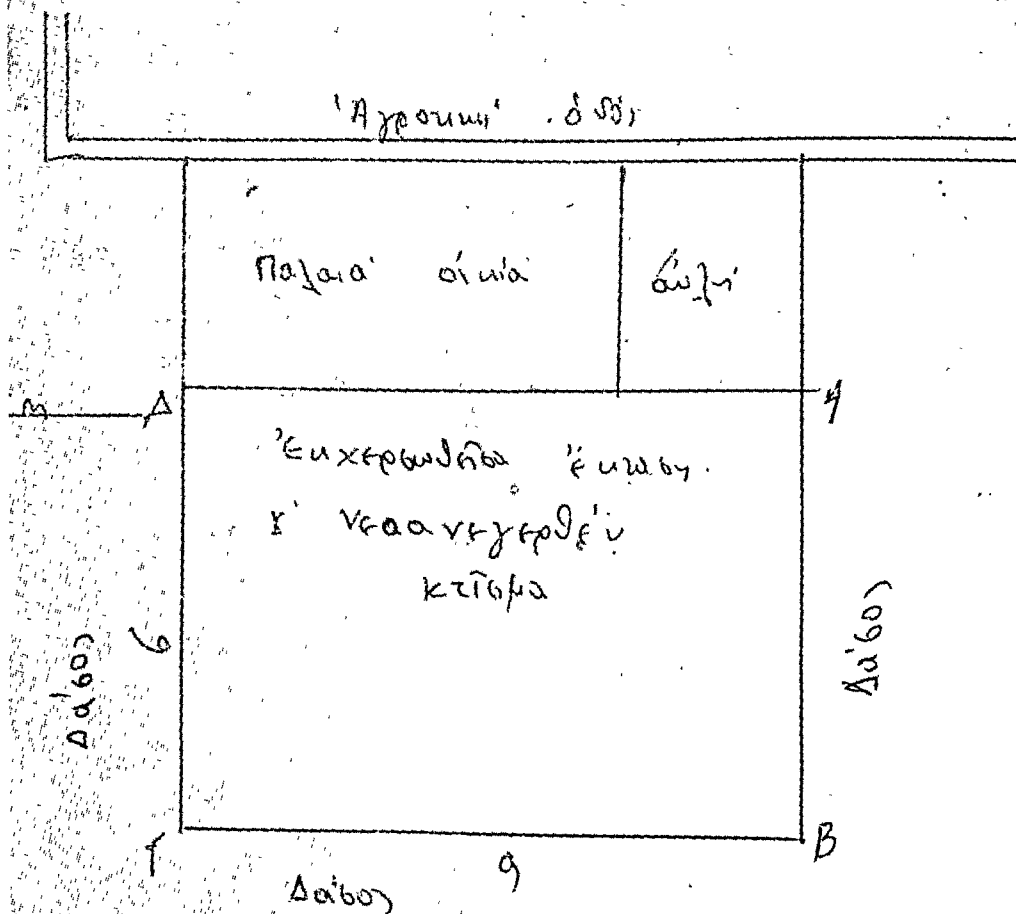 Ἀγροτικὴ ὁδός
Παλαιὰ οἰκία
αὐλή
Δ
Α
Ἐκχερσωθεῖσα ἔκτασις
κ' νεαανεγερθέν
κτῖσμα
6
Δάσος
Δάσος
Γ
9
Β
Δάσος